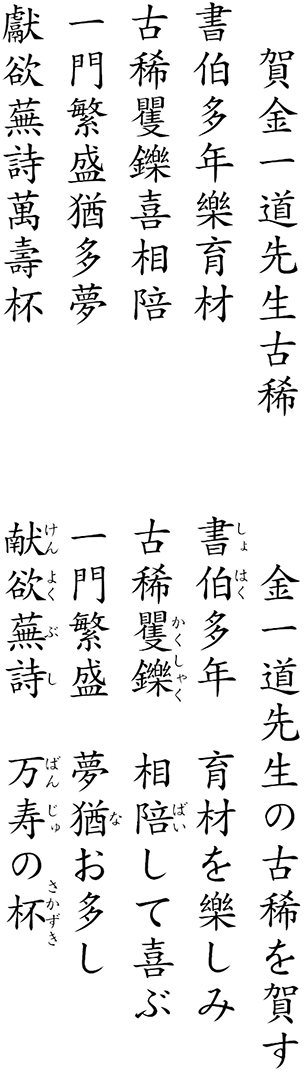 賀金一道先生古稀
書伯多年樂育材
古稀矍鑠喜相陪
一門繁盛猶多夢
獻欲蕪詩萬壽杯
金一道先生の古稀を賀す
書伯多年　育材を樂しみ
しょはく
古稀矍鑠　相陪して喜ぶ
かくしゃく　ばい
一門繁盛　夢猶お多し
な
献欲蕪詩　万寿の杯
けんよくぶし　ばんじゅ　さかずき